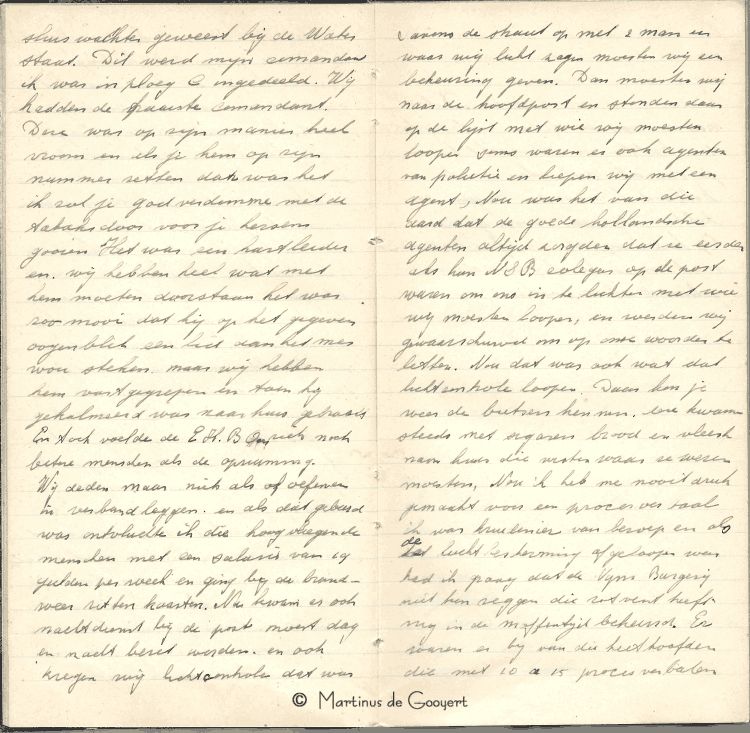 sluiswachter geweest bij de Water
staat. Dit werd mijn comandant
ik was in ploeg C ingedeeld. Wij
hadden de comandant.
Deze was op zijn manier heel
vroom en als je hem op zijn
nummer zetten dat was het
ik zal je godverdomme met de
tabaksdoos voor je hersens
gooien Het was een hartleider
en. wij hebben heel wat met
hem moeten doorstaan het was
zoo mooi dat hij op het gegeven
oogenblik een lid aan het mes
wou steken. maar wij hebben
hem vastgegrepen en toen hij
gekalmeerd was naar huis gebracht
En toch voelde de E.H.B.O. zich nog
betere menschen als de opruiming.
Wij deden maar niets als oefenen
in verband leggen. en als dat gebeurd
was ontvluchte ik die hoogvliegende
menschen met een salaris van 19
gulden per week en ging bij de brand-
weer zitten kaarten. Nu kwam er ook
nachtdienst bij de post moest dag
en nacht bezet worden. en ook
kregen wij lichtcontrole dat was
s'avons de straat op met 2 man en
waar wij licht zagen moesten wij een
bekeuring geven. Dan moesten wij
naar de hoofdpost en stonden daar
op de lijst met wie wij moesten
loopen soms waren er ook agenten
van polietie en liepen wij met een
agent, Nou was het van die
aard dat de goede hollandsche
agenten altijd zorgden dat ze eerder
als hun NSB colegas op de post
waren om ons in te lichten met wie
wij moesten loopen, en werden wij
gewaarschuwd om op onze woorden te
letten. Nou dat was ook wat dat
lichtcontrole loopen. Daar kon je
weer de buitzen kennen. die kwamen
steeds met sigaren brood en vleesch
naar huis die wisten waar ze wezen
moesten. Nou ik heb me nooit druk
gemaakt voor een proces ver baal
ik was kruidenier van beroep en als
de lucht bescherming afgeloopen was
had ik graag dat de Burgerij
niet kon zeggen die rotvent heeft
mij in de moffentijd bekeurd. Er
waren er bij van die heethoofden
die met 10 a 15 proces verbalen
© Martinus de Gooyert